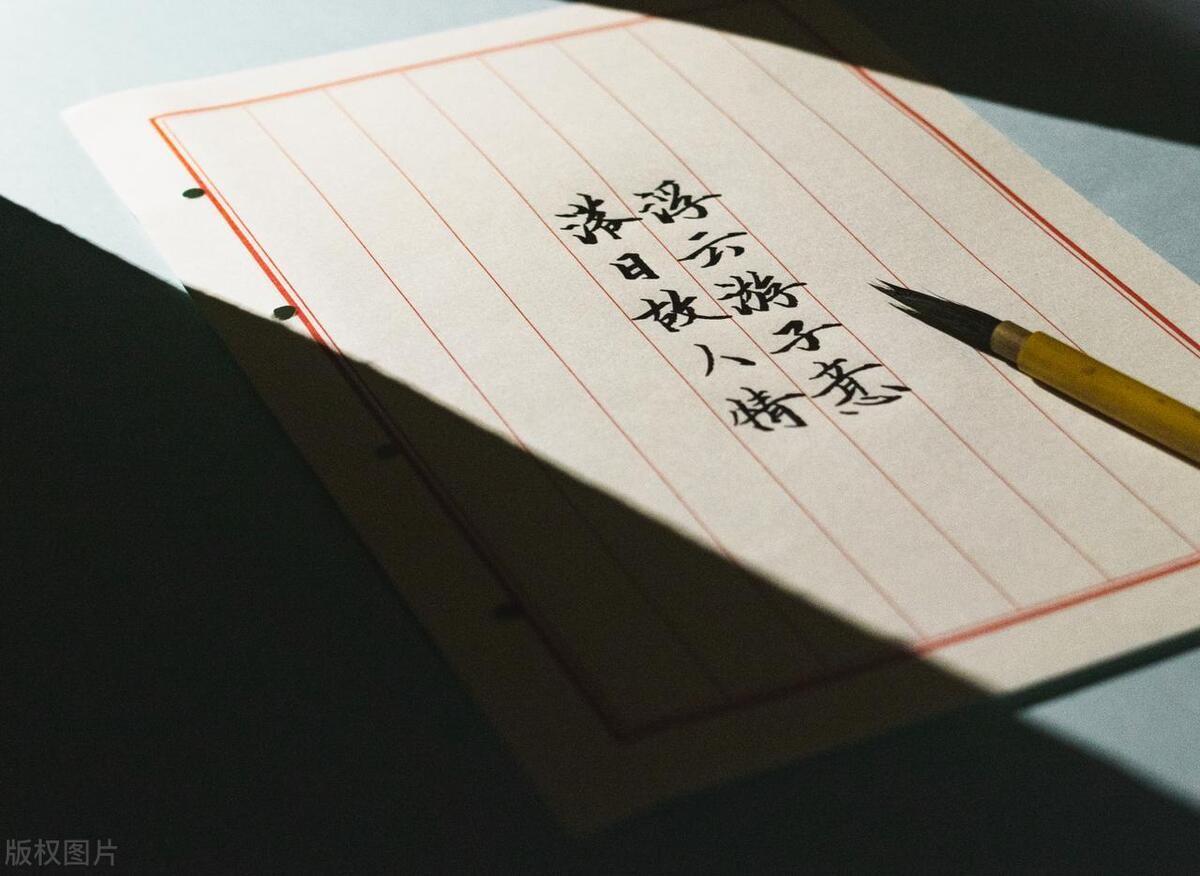 浮云游子意
落日故人情
版权图片